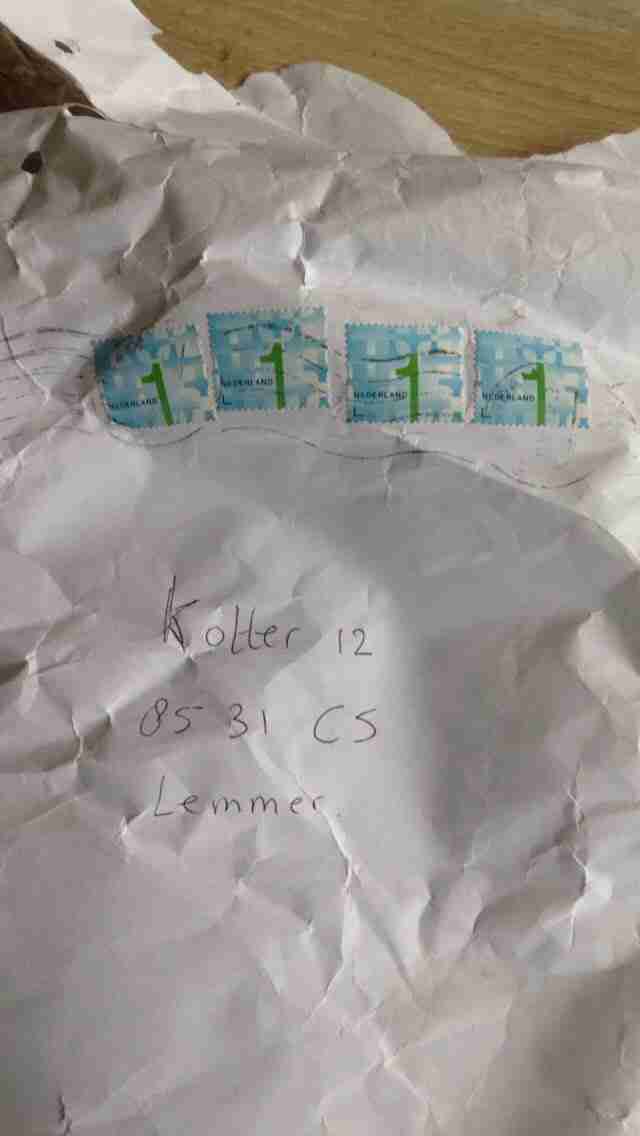 1 NEDERLAND
1 NEDERLAND
1 NEDERLAND
1 NEDERLAND
Kolter 12
8531 CS
Lemmer.